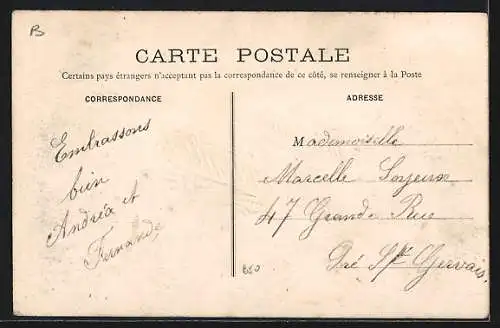 B
CARTE POSTALE
Certains pays étrangers n'acceptant pas la correspondance de ce côté, se renseigner à la Poste
CORRESPONDANCE
Embrassons
bien
Andréa et
Fernande,
ADRESSE
Mademoiselle
Marcelle Soyeux
47 Grande Rue
Pré St Gervais.